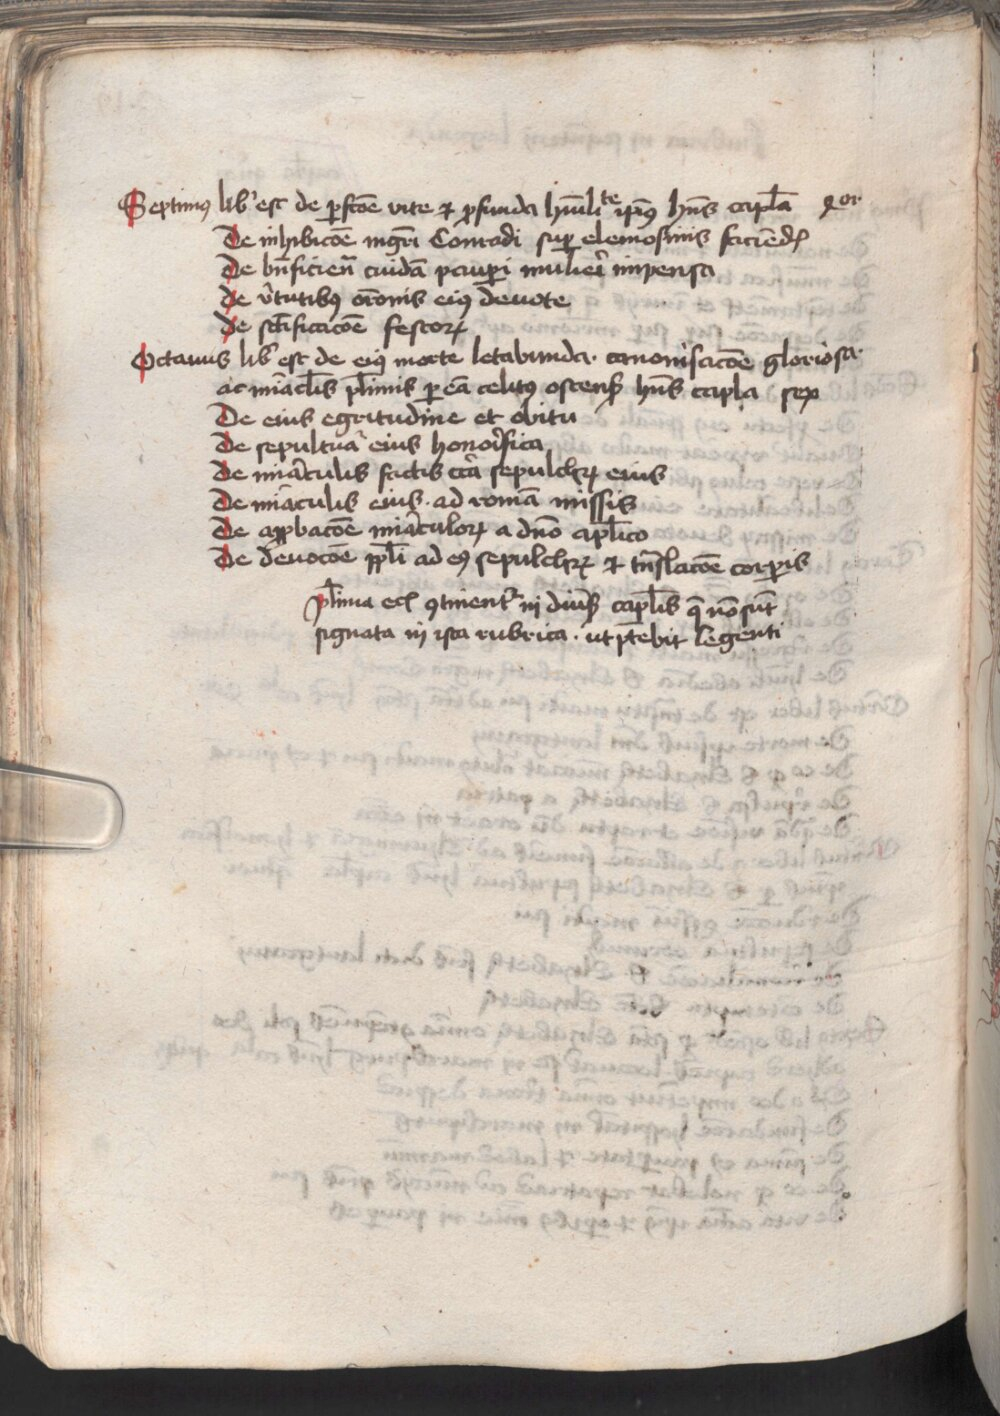 Septimus lib' est de p̱fcōe vite et p̱funda hūīlitate ipi9 hn̄s capl̄a q̄or
De inhibicōe mgr̄i Conradi sup̱ elemosinis faciēdꝭ
De bn̄ficien̄ cuidā paup̱i mulieri impensa
de v̄tutibꝯ or̄onis eiꝯ deuote
de sc̄ificacōe festoꝝ
Octauus lib' est de eiꝯ morte letabunda · canonisacōe gloriosa ·
ac mirac̄lis pl̄imis p̱ eā celitꝯ ostens̄ hn̄s capl̄a sex
De eius egritudine et obitu
De sepultura eius honorifica
De miraculis factis circa sepulchꝝ eius
De miraculis eius · ad romā missis
De app̱bacōe miraculoꝝ a dn̄o apl̄ico
De deuocōe ppl̄i ad eꝯ sepulchꝝ et tn̄slacōe corp̱is
Pl̄ima eciā ꝯtinent᷑ in diuers̄ capl̄is q̄ nō sūt
signata in ista rubrica · ut pt̄ebit legenti